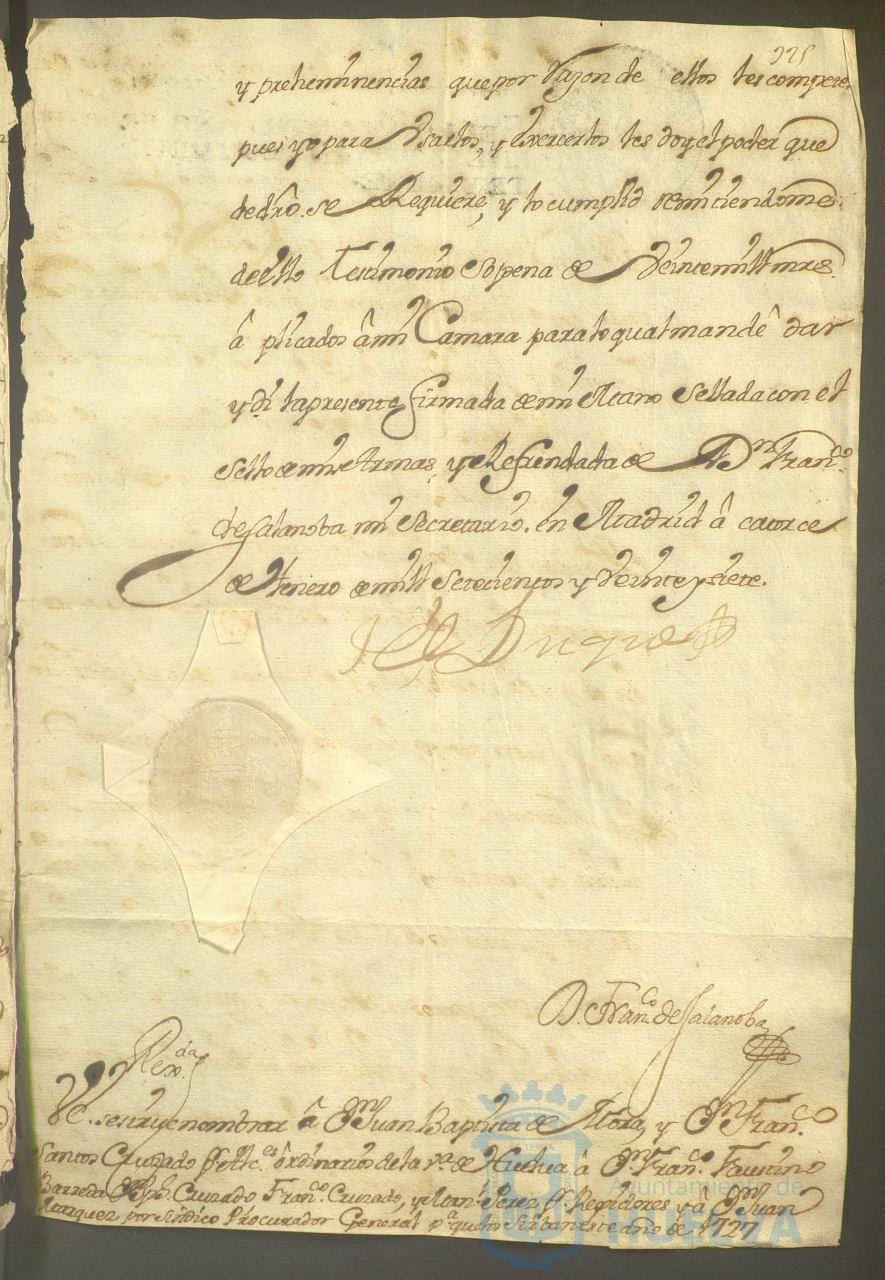 225
y preheminencias que por Razon de ellos les compete,
pues yo para Vsarlos, y exercerlos les doy el poder que
de dro. se Requiere, y lo cumplid remitiendome
de ello Testimonio so pena de Veinte mill mrs.
âplicados â mi Camara para lo qual mandê dar
y di la presente firmada de mi Mano Sellada con el
Sello de mis Armas, y Refrendada de Dn. Franco.
de Salanoba mi Secretario. en Madrid â catorce
de Henero de mill Setecientos y Veinte y siete.
El Duque
D. Franco. de Salanoba
Rexda.
VE. se sirve nombrar â Dn. Juan Baptista de Mora, y Dn. Franco.
Santos Cruzado Alces. ôrdinarios de la va. de Huelva â Dn. Franco. Faustino
Barreda Cruzado Franco. Cruzado, y Juan Perez Regidores y â Dn. Juan
Marquez por Sindico Procurador General pa. que lo Sirban este año de 1727
Ayuntamiento de
HUELVA